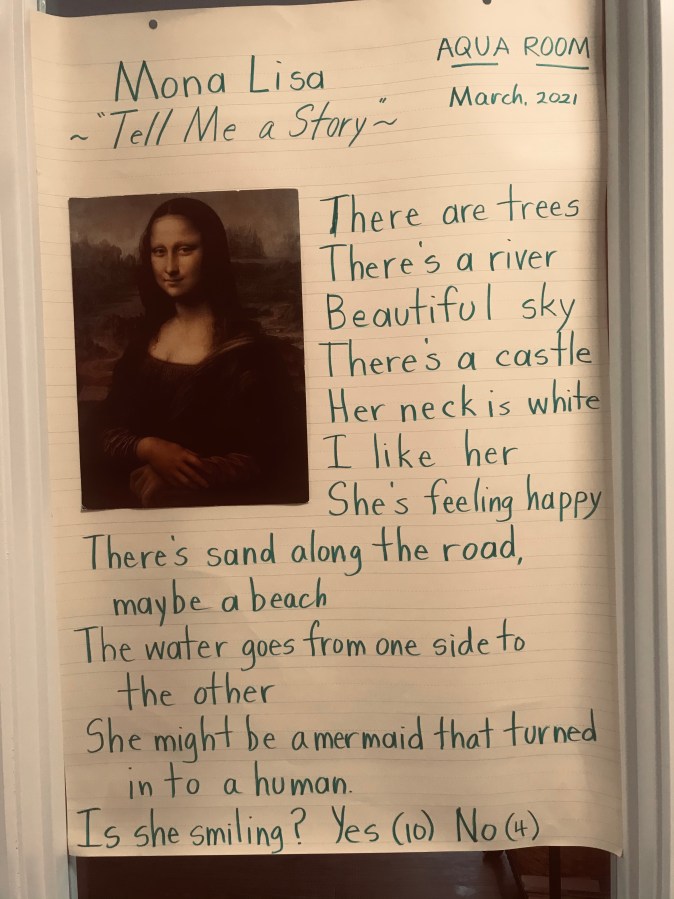 Mona Lisa
~"Tell Me a Story"~
AQUA ROOM
March, 2021
There are trees
There's a river
Beautiful sky
There's a castle
Her neck is white
I like her
She's feeling happy
There's sand along the road,
maybe a beach
The water goes from one side to
the other
She might be a mermaid that turned
in to a human.
Is she smiling? Yes (10) No (4)